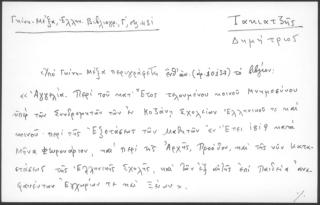 Γκίνη-Μέξα, Ἑλλην. Βιβλιογρ., Γ, σελ. 431
Τακιατζῆς
Δημήτριος
Ὑπὸ Γκίνη-Μέξα περιγράφεται (ἀρ. 10238) τὸ βιβλίον:
«Ἀγγελία. Περὶ τοῦ κατ' Ἔτος τελουμένου κοινοῦ Μνημοσύνου
ὑπὲρ τῶν Συνδρομητῶν τῶν ἐν Κοζάνῃ Σχολείων Ἑλληνικοῦ τε καὶ
κοινοῦ· περὶ τῆς Ἐξετάσεως τῶν Μαθητῶν ἐν Ἔτει 1818 κατὰ
Μῆνα Φευρουάριον, καὶ περὶ τῆς Ἀρχῆς, Προόδου, καὶ τῆς νῦν Κατα-
στάσεως τῆς Ἑλληνικῆς Σχολῆς, καὶ τῶν ἐξ αὐτῆς ἐπὶ Παιδείᾳ ἀνα-
φανέντων Ἐγχωρίων τε καὶ Ξένων».
·/.